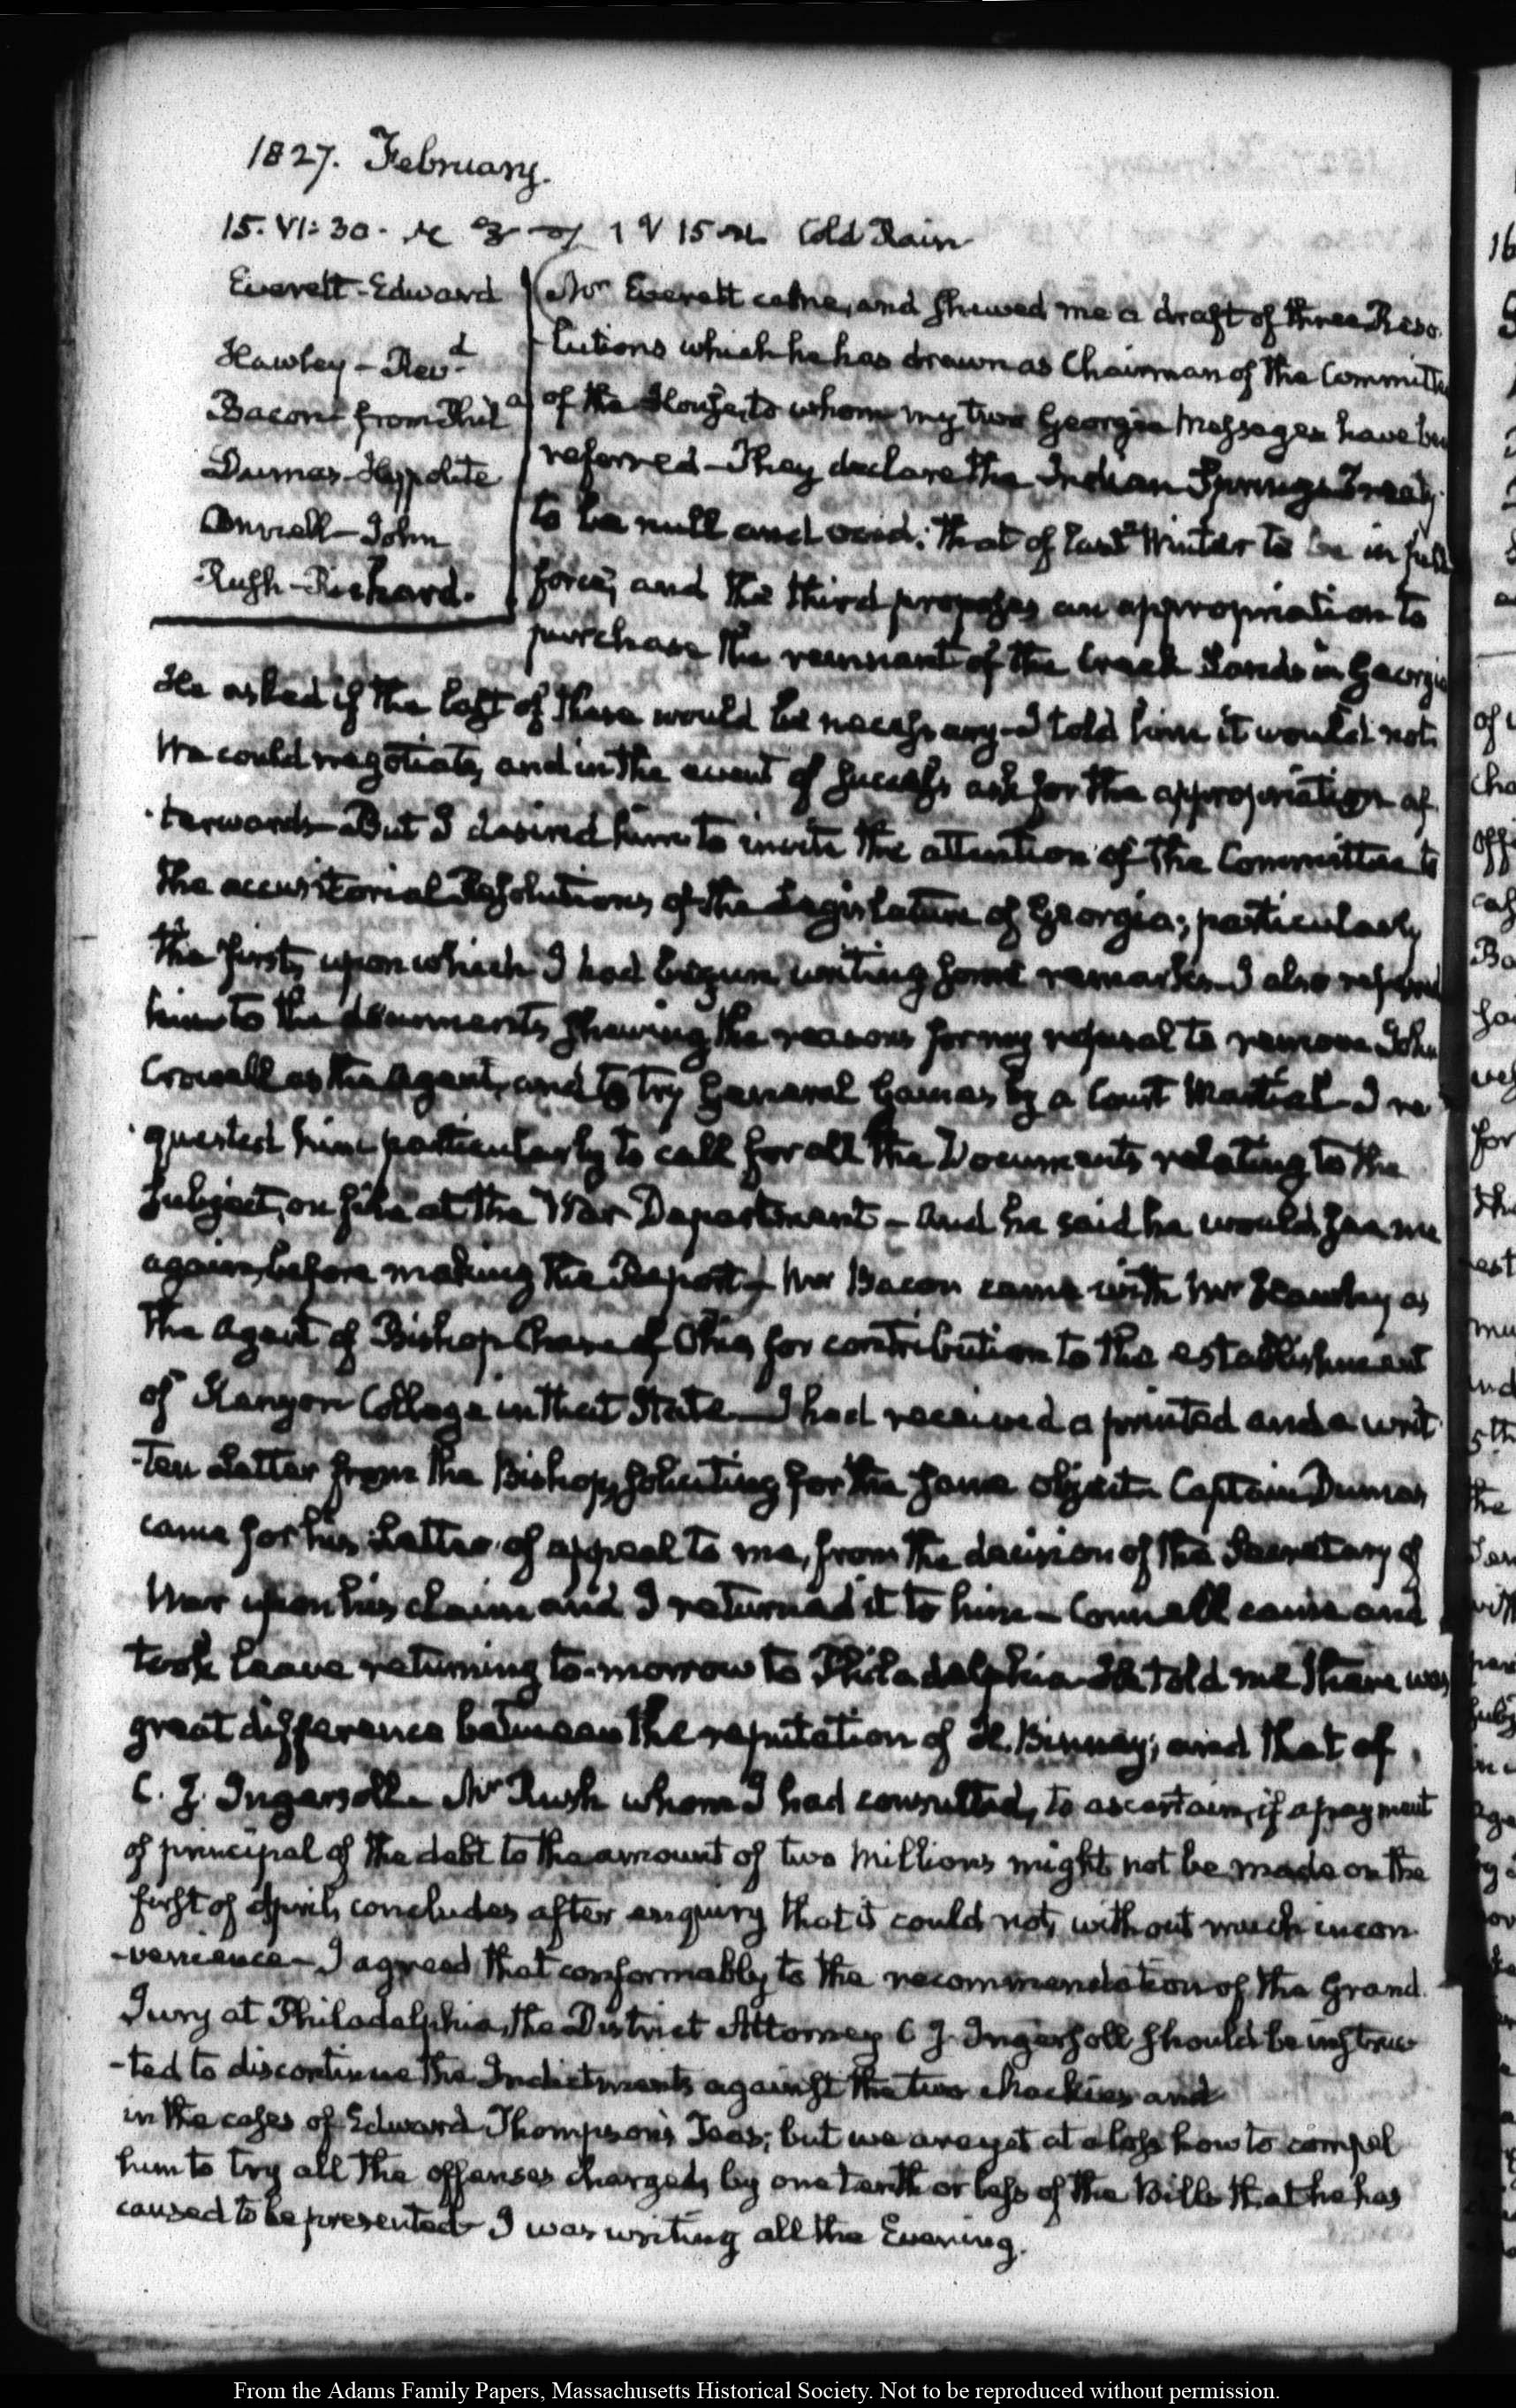 1827. February.
15. VI: 30. Cold Rain
Everett - Edward
Hawley - Revd.
Bacon - from Phila
Dumas - Hyppolite
Connell - John
Rush - Richard.
(Mr Everett came, and shewed me a draft of three Reso
-lutions which he has drawn as Chairman of the Committee
of the House, to whom my two Georgia Messages have been
referred - They declare the Indian Springs Treaty
to be null and void; that of last Winter to be in full
force; and the third proposes an appropriation to
purchase the remnant of the Creek Lands in Georgia
He asked if the last of these would be necessary - I told him it would not.
We could negotiate, and in the event of success ask for the appropriation af
-terwards - But I desired him to invite the attention of the Committee to
the accusitorial Resolutions of the Legislature of Georgia; particularly
the first, upon which I had begun writing some remarks - I also referred
him to the documents, shewing the reasons for my refusal to remove John
Crowell as the Agent, and to try General Gaines by a Court Martial - I re
-quested him particularly to call for all the Documents relating to the
subject, on file at the War Department - And he said he would see me
again, before making the Report.) Mr Bacon came with Mr Hawley as
the Agent of Bishop Chase of Ohio, for contribution to the establishment
of Kenyon College in that State - I had received a printed and a writ
-ten Letter from the Bishop, soliciting for the same object - Captain Dumas
came for his Letter of appeal to me, from the decision of the Secretary of
War upon his claim and I returned it to him - Connell came and
took leave returning to-morrow to Philadelphia - He told me there was
great difference between the reputation of H. Binney; and that of
C. J. Ingersoll - Mr Rush whom I had consulted, to ascertain, if a payment
of principal of the debt to the amount of two Millions might not be made on the
first of April, concludes after enquiry that it could not, without much incon
-venience - I agreed that conformably to the recommendation of the Grand
Jury at Philadelphia, the District Attorney C J. Ingersoll should be instruc
-ted to discontinue the Indictments against the two Mackies and
in the cases of Edward Thompson's Teas; but we are yet at a loss how to compel
him to try all the offenses charged, by one tenth or less of the Bills that he has
caused to be presented - I was writing all the Evening.
From the Adams Family Papers, Massachusetts Historical Society. Not to be reproduced without permission.